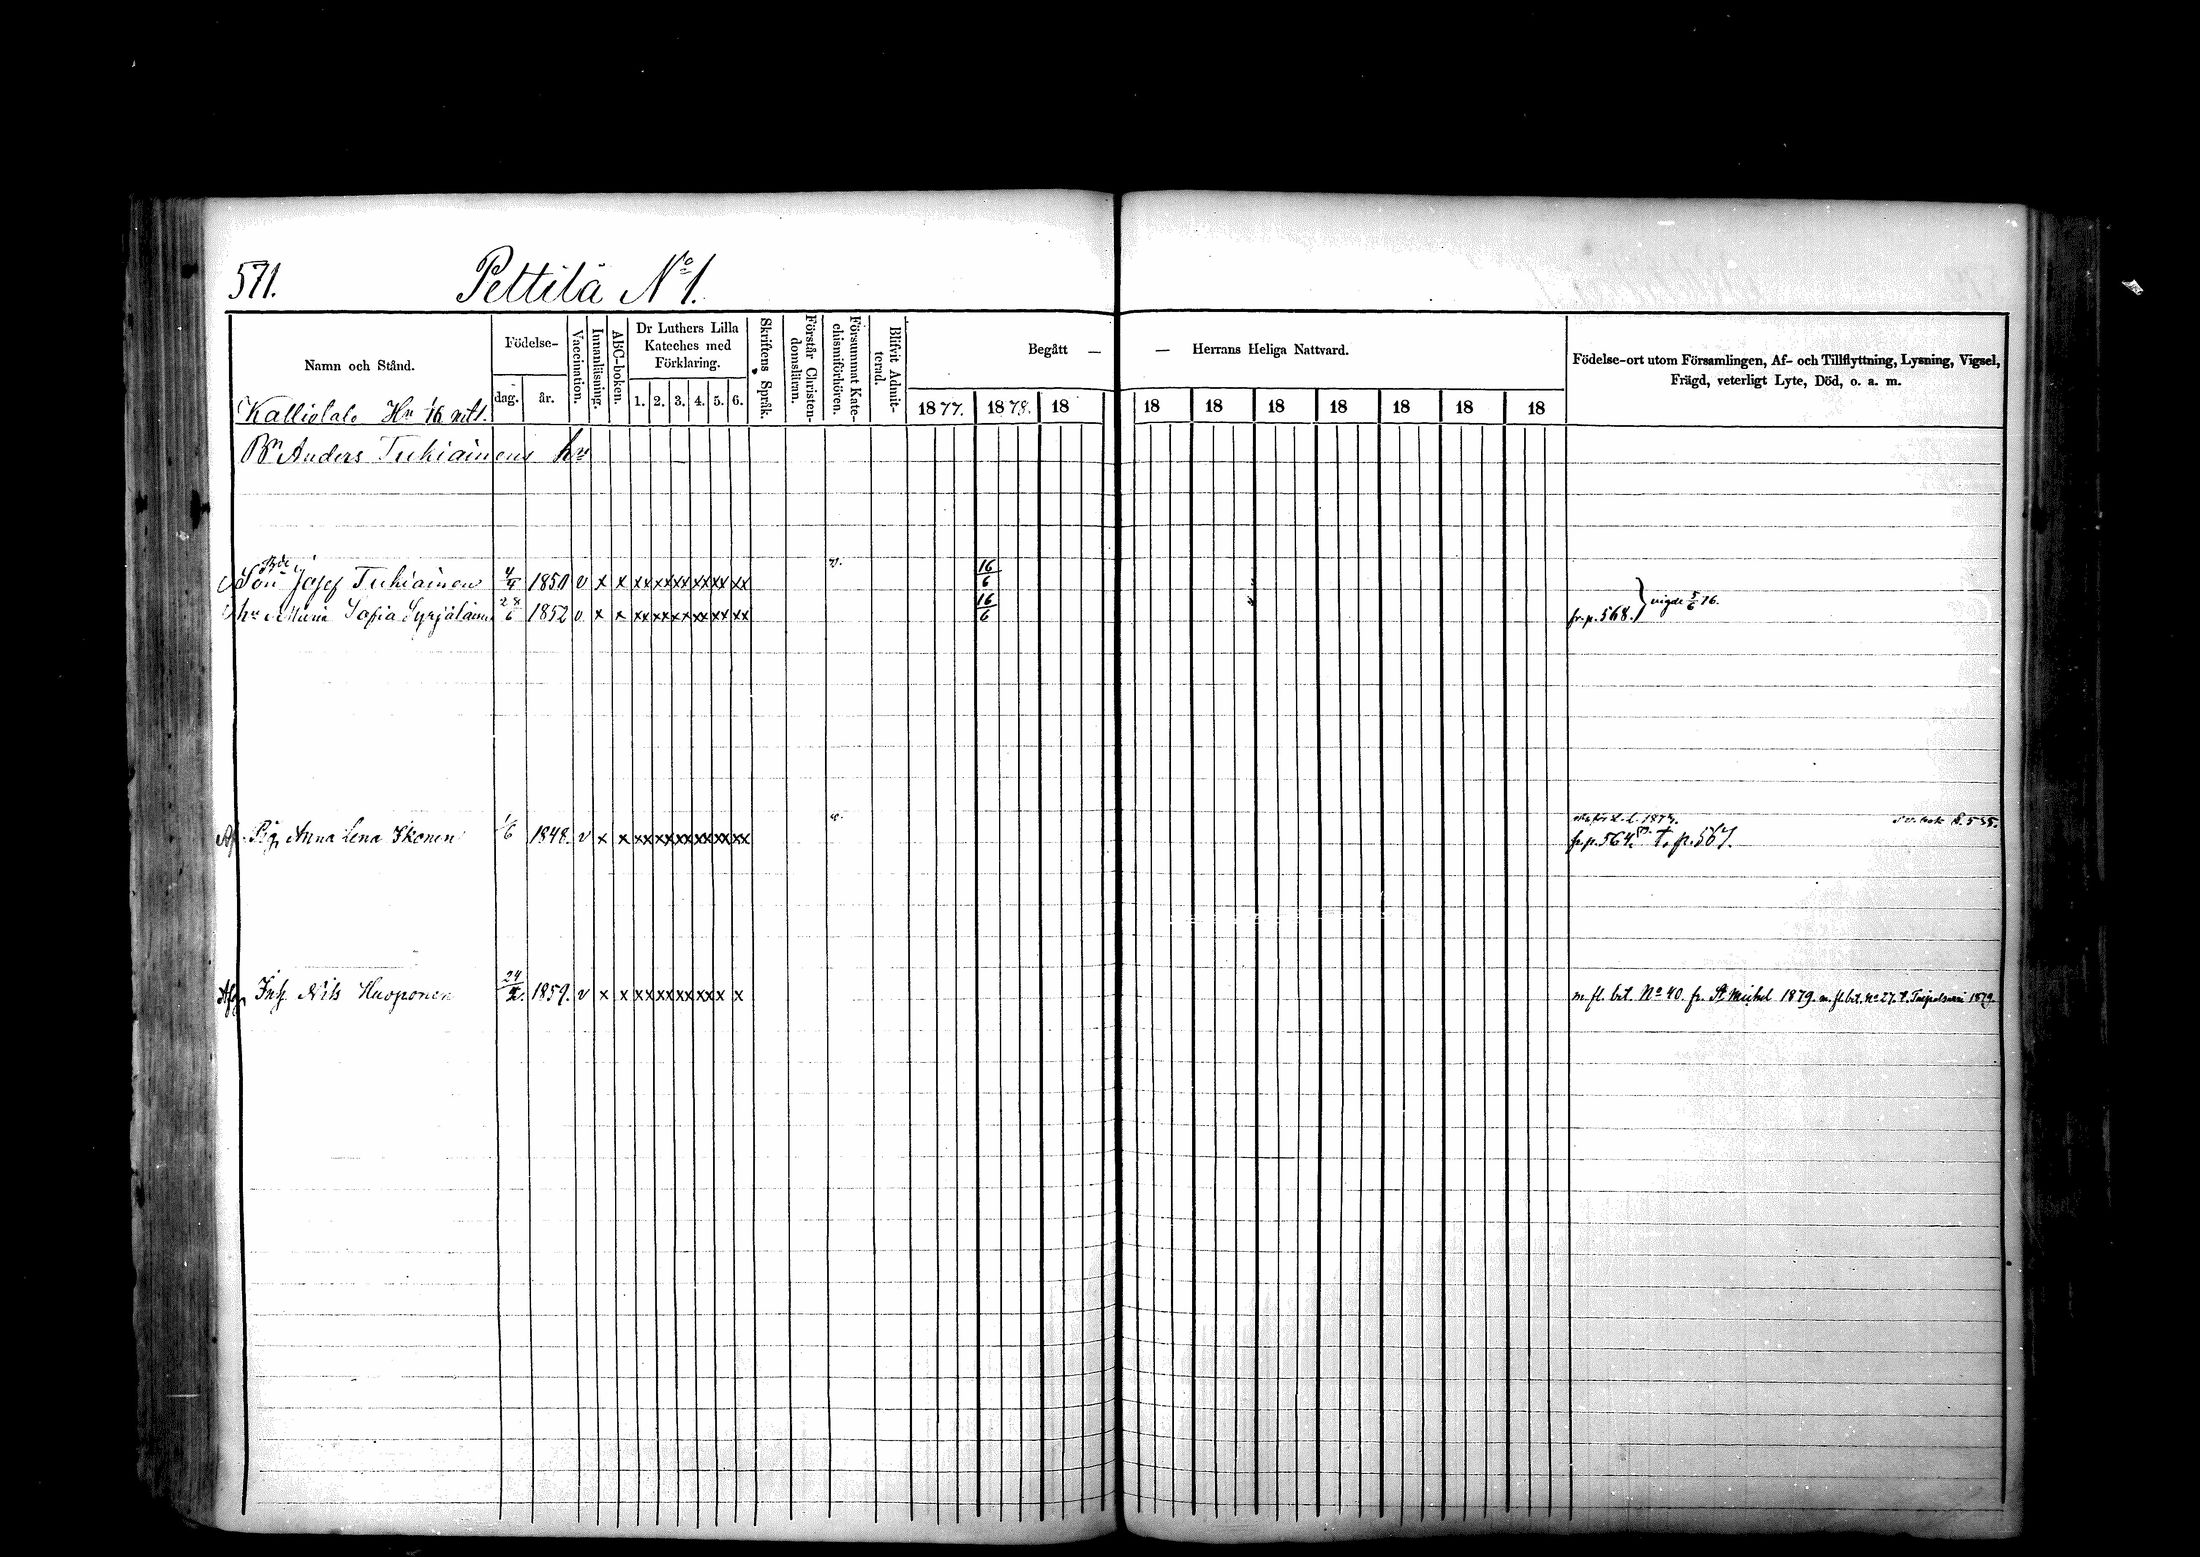 571. Pettilä No 1.
Namn och Stånd.
Födelse-
dag. år.
Vaccination.
Innanläsning.
ABC-boken.
Dr Luthers Lilla
Kateches med
Förklaring.
1. 2. 3. 4. 5. 6.
Skriftens Språk.
Förstår Christen-
domsläran.
Försummat Kate-
chismiförhören.
Blifvit Admit-
terad.
Begått — — Herrans Heliga Nattvard.
1877. 1878. 18 18 18 18 18 18 18 18
Födelse-ort utom Församlingen, Af- och Tillflyttning, Lysning, Vigsel,
Frägd, veterligt Lyte, Död, o. a. m.
Kalliotalo Hn 16 mtl.
Bn Anders Tuhiainens hu
Son Josef Tuhiainen 4/4 1850 v x x xx xx xx xx xx xx v. 16/6
hu Maria Sofia Syrjäläinen 28/6 1852 v x x xx xx xx xx xx xx 16/6 fr. p. 568. } vigde 5/6 76.
Pig. Anna Lena Ikonen 1/6 1848. v x x xx xx xx xx xx xx fr. p. 564. t. p. 567.
Inh. Nils Huoponen 24/2. 1859. v x x xx xx xx xx x x m. fl. bet. No 40. fr. St Michel 1879. m. fl. bet. No 27. t. Taipalsaari 1879